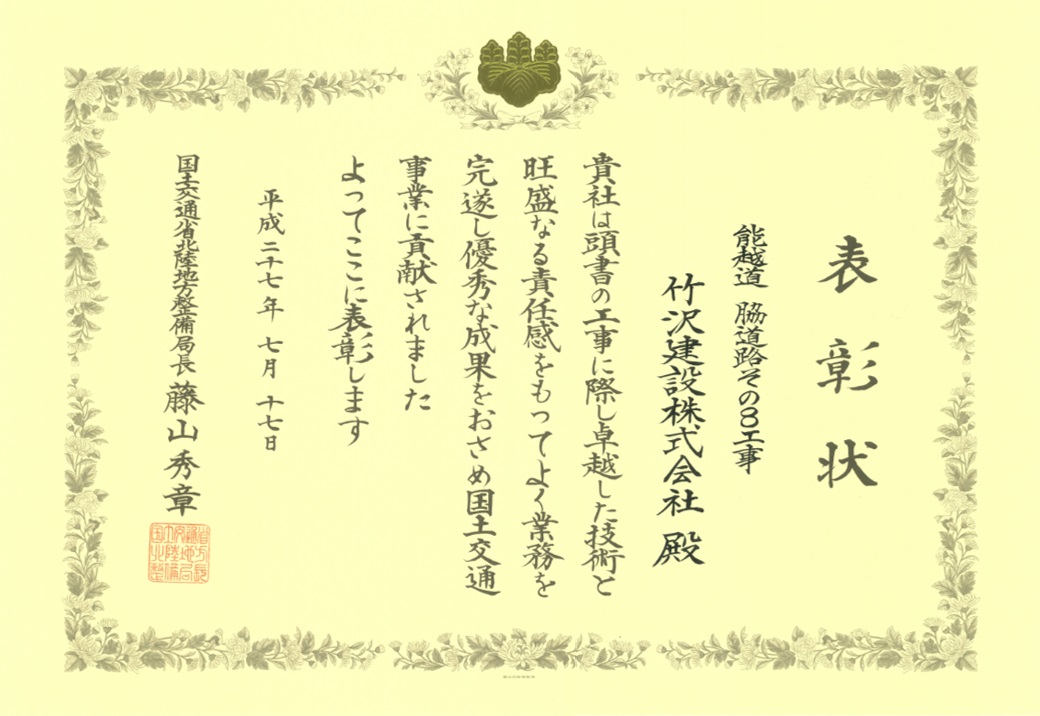 表彰状
能越道 脇道路その8工事
竹沢建設株式会社 殿
貴社は頭書の工事に際し卓越した技術と
旺盛なる責任感をもってよく業務を
完遂し優秀な成果をおさめ国土交通
事業に貢献されました
よってここに表彰します
平成二十七年 七月 十七日
国土交通省北陸地方整備局長 藤山秀章